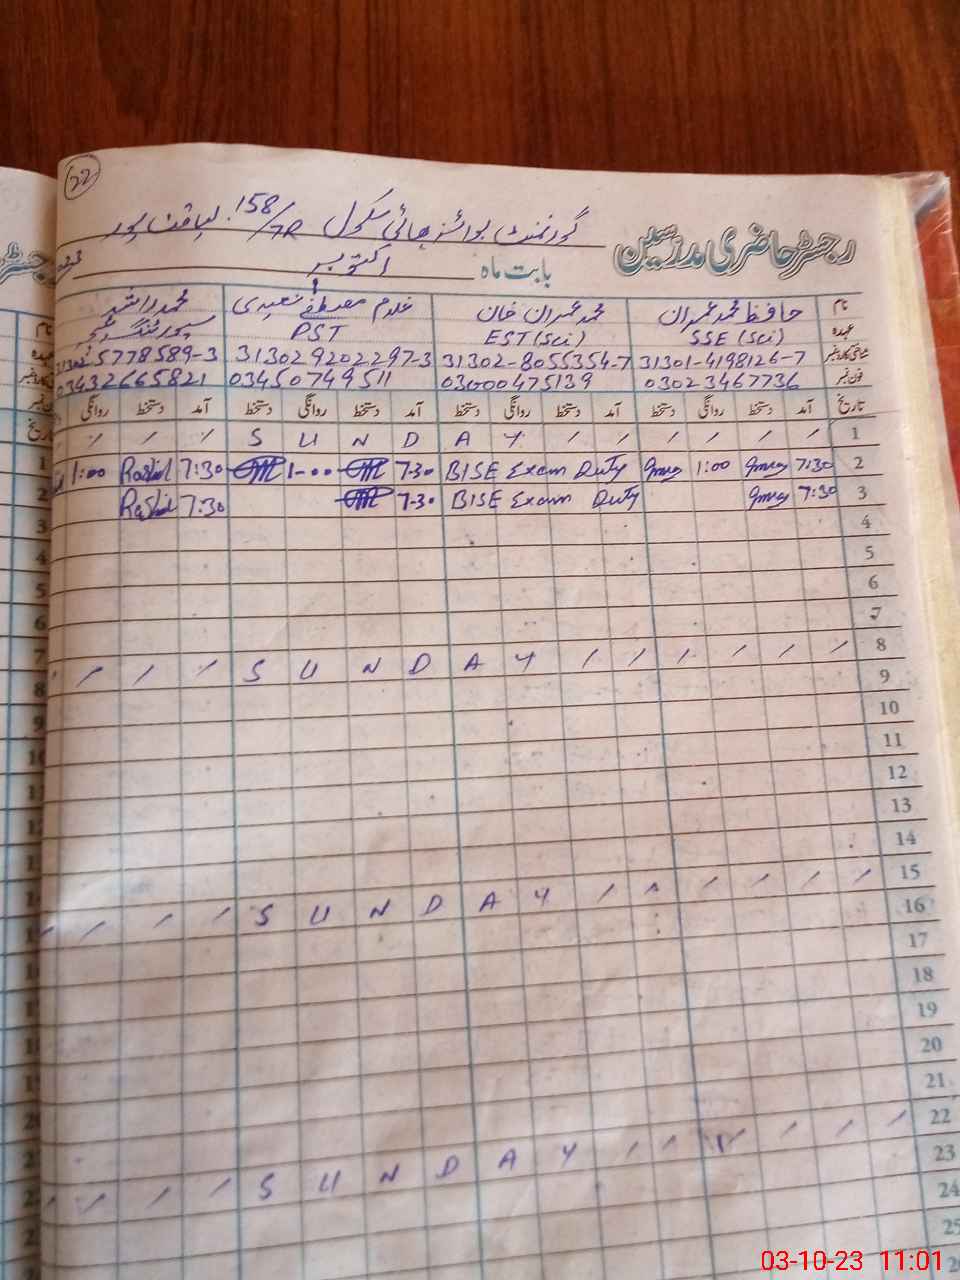 22
گورنمنٹ بوائز ہائی سکول 158/7R لیاقت پور
رجسٹر حاضری مدرسین
بابت ماہ اکتوبر
نام حافظ محمد عمران محمد عمران خان غلام مصطفیٰ سعیدی محمد راشد
عہدہ SSE (Sci) EST (Sci) PST
شناختی کارڈ نمبر 31301-4198126-7 31302-8055354-7 313029202297-3 31302-5778589-3
فون نمبر 03023467736 03000475139 03450749511 03432665821
تاریخ آمد دستخط روانگی دستخط آمد دستخط روانگی دستخط آمد دستخط روانگی دستخط آمد دستخط روانگی
1 SUNDAY
2 7:30 Imran 1:00 Imran BISE Exam Duty 7-30 1-00 7:30 Rashid 1:00
3 7:30 Imran BISE Exam Duty 7-30 7:30 Rashid
4
5
6
7
8 SUNDAY
9
10
11
12
13
14
15 SUNDAY
16
17
18
19
20
21
22 SUNDAY
23
24
25
03-10-23 11:01